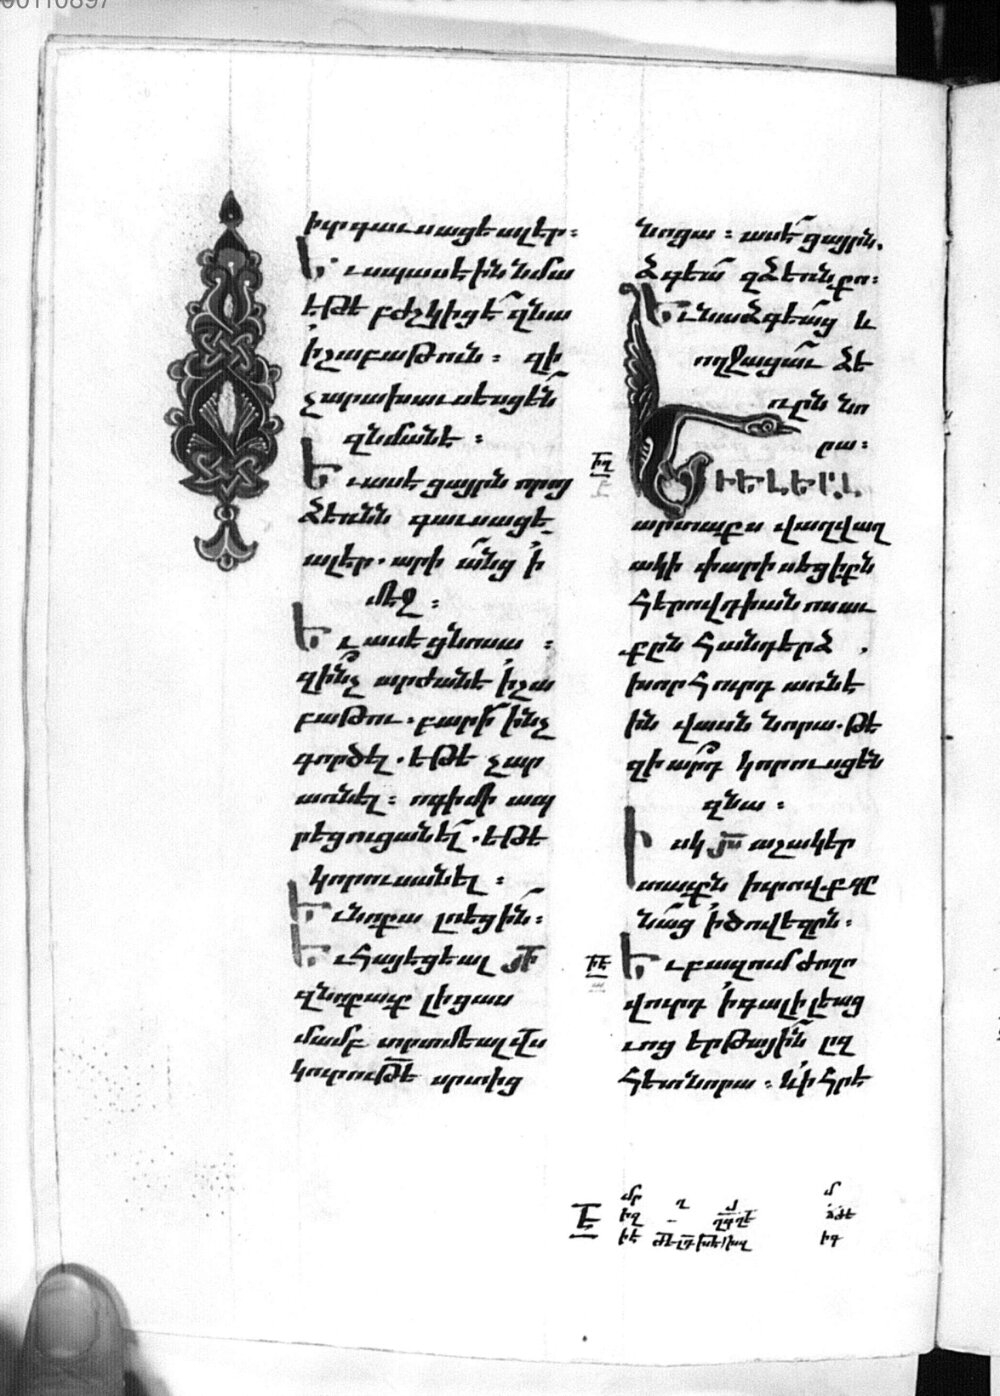 իւր գաւսացեալ էր։
Եւ սպասէին նմա
եթէ բժշկիցէ զնա
ի շաբաթուն։ զի
չարախաւսեսցեն
զնմանէ։
Եւ ասէ ցայրն որոյ
ձեռնն գաւսացե
ալ էր. արի անց ի
մէջ։
Եւ ասէ ցնոսա։
զինչ արժանէ ի շա
բաթու. բարի ինչ
գործել. եթէ չար
առնել։ ոգի մի ապ
րեցուցանել. եթէ
կորուսանել։
Եւ նոքա լռեցին։
Եւ հայեցեալ յի
զնոքաւք լի ցաս
մամբ տրտմեալ վս
կուրութե սրտից
նոցա։ ասէ ցայրն.
Ձգեա զձեռն քո։
Եւ նա ձգեաց և
ողջացաւ ձե
ռըն նո
րա։
Եւ ԵԼԵԱԼ
արտաքս վաղվաղ
ակի փարիսեցիքն
հերովդիանոսաւ
քըն հանդերձ,
խորհուրդ առնէ
ին վասն նորա. թէ
զիարդ կորուսցեն
զնա։
Իսկ յս աշակեր
տաքն իւրովք գը
նաց ի ծովեզրն։
Եւ բազում ժողո
վուրդ ի գալիլեաց
ւոց երթային ըզ
հետ նորա։ և ի հրէ